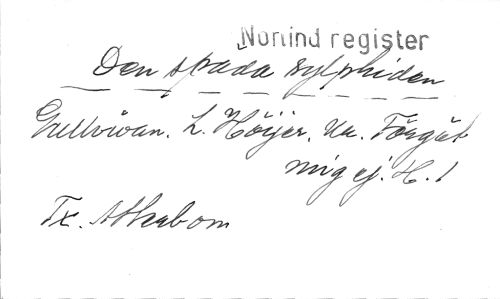 Nonind register
Den späda sylphiden
Gullvivan. L. Höijer. Ur. Förgät
mig ej. H. 1
Tx. Atterbom